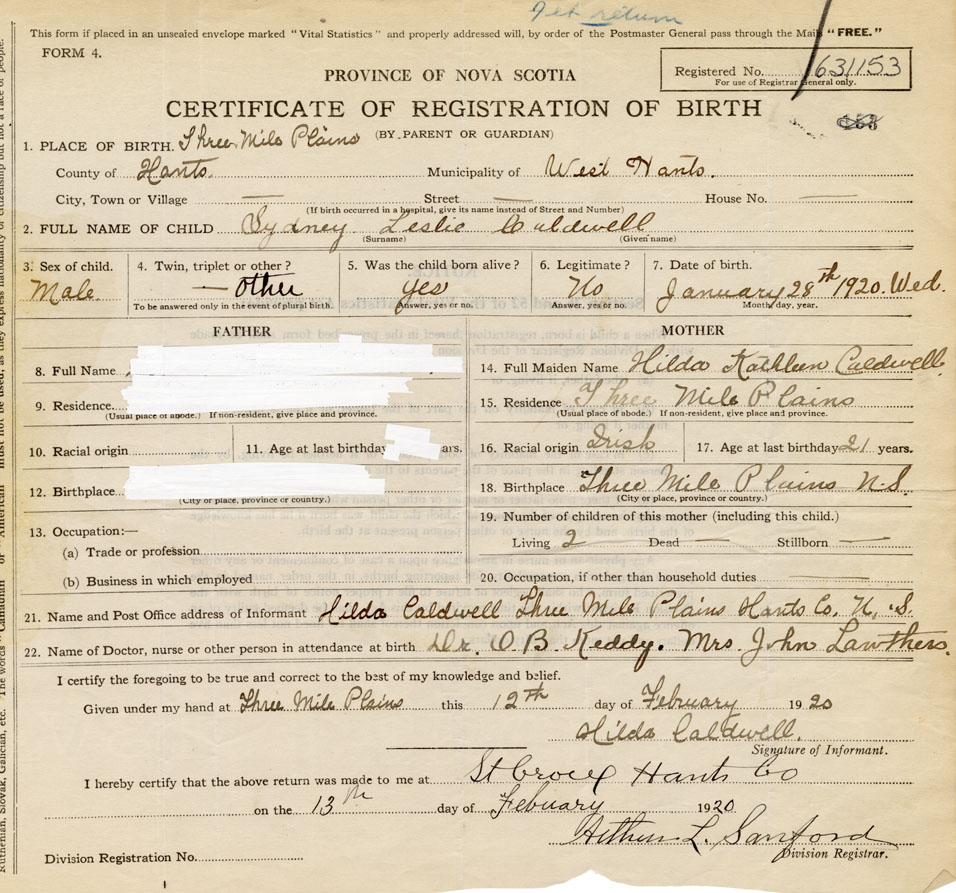 Jet return
This form if placed in an unsealed envelope marked "Vital Statistics" and properly addressed will, by order of the Postmaster General pass through the Mails "FREE."
FORM 4.
PROVINCE OF NOVA SCOTIA
Registered No. 631153
For use of Registrar General only.
CERTIFICATE OF REGISTRATION OF BIRTH
(BY PARENT OR GUARDIAN)
1. PLACE OF BIRTH. Three Mile Plains
County of Hants. Municipality of West Hants.
City, Town or Village — Street — House No. —
(If birth occurred in a hospital, give its name instead of Street and Number)
2. FULL NAME OF CHILD Sydney Leslie Caldwell
(Surname) (Given name)
3. Sex of child. 4. Twin, triplet or other? 5. Was the child born alive? 6. Legitimate? 7. Date of birth.
Male. — other yes No January 28th 1920. Wed.
To be answered only in the event of plural birth. Answer, yes or no. Answer, yes or no. Month, day, year.
FATHER MOTHER
8. Full Name 14. Full Maiden Name Hilda Kathleen Caldwell.
9. Residence. 15. Residence Three Mile Plains
(Usual place of abode.) If non-resident, give place and province. (Usual place of abode.) If non-resident, give place and province.
10. Racial origin 11. Age at last birthday ars. 16. Racial origin Irish 17. Age at last birthday 21 years.
12. Birthplace 18. Birthplace Three Mile Plains N.S.
(City or place, province or country.) (City or place, province or country.)
13. Occupation:— 19. Number of children of this mother (including this child.)
(a) Trade or profession Living 2 Dead — Stillborn —
(b) Business in which employed 20. Occupation, if other than household duties —
21. Name and Post Office address of Informant Hilda Caldwell Three Mile Plains Hants Co. N. S.
22. Name of Doctor, nurse or other person in attendance at birth Dr. O B. Keddy. Mrs John Lawthers.
I certify the foregoing to be true and correct to the best of my knowledge and belief.
Given under my hand at Three Mile Plains this 12th day of February 1920
Hilda Caldwell.
Signature of Informant.
I hereby certify that the above return was made to me at St Croix Hants Co
on the 13th day of Febuary 1920
Arthur L. Sanford
Division Registrar.
Division Registration No.